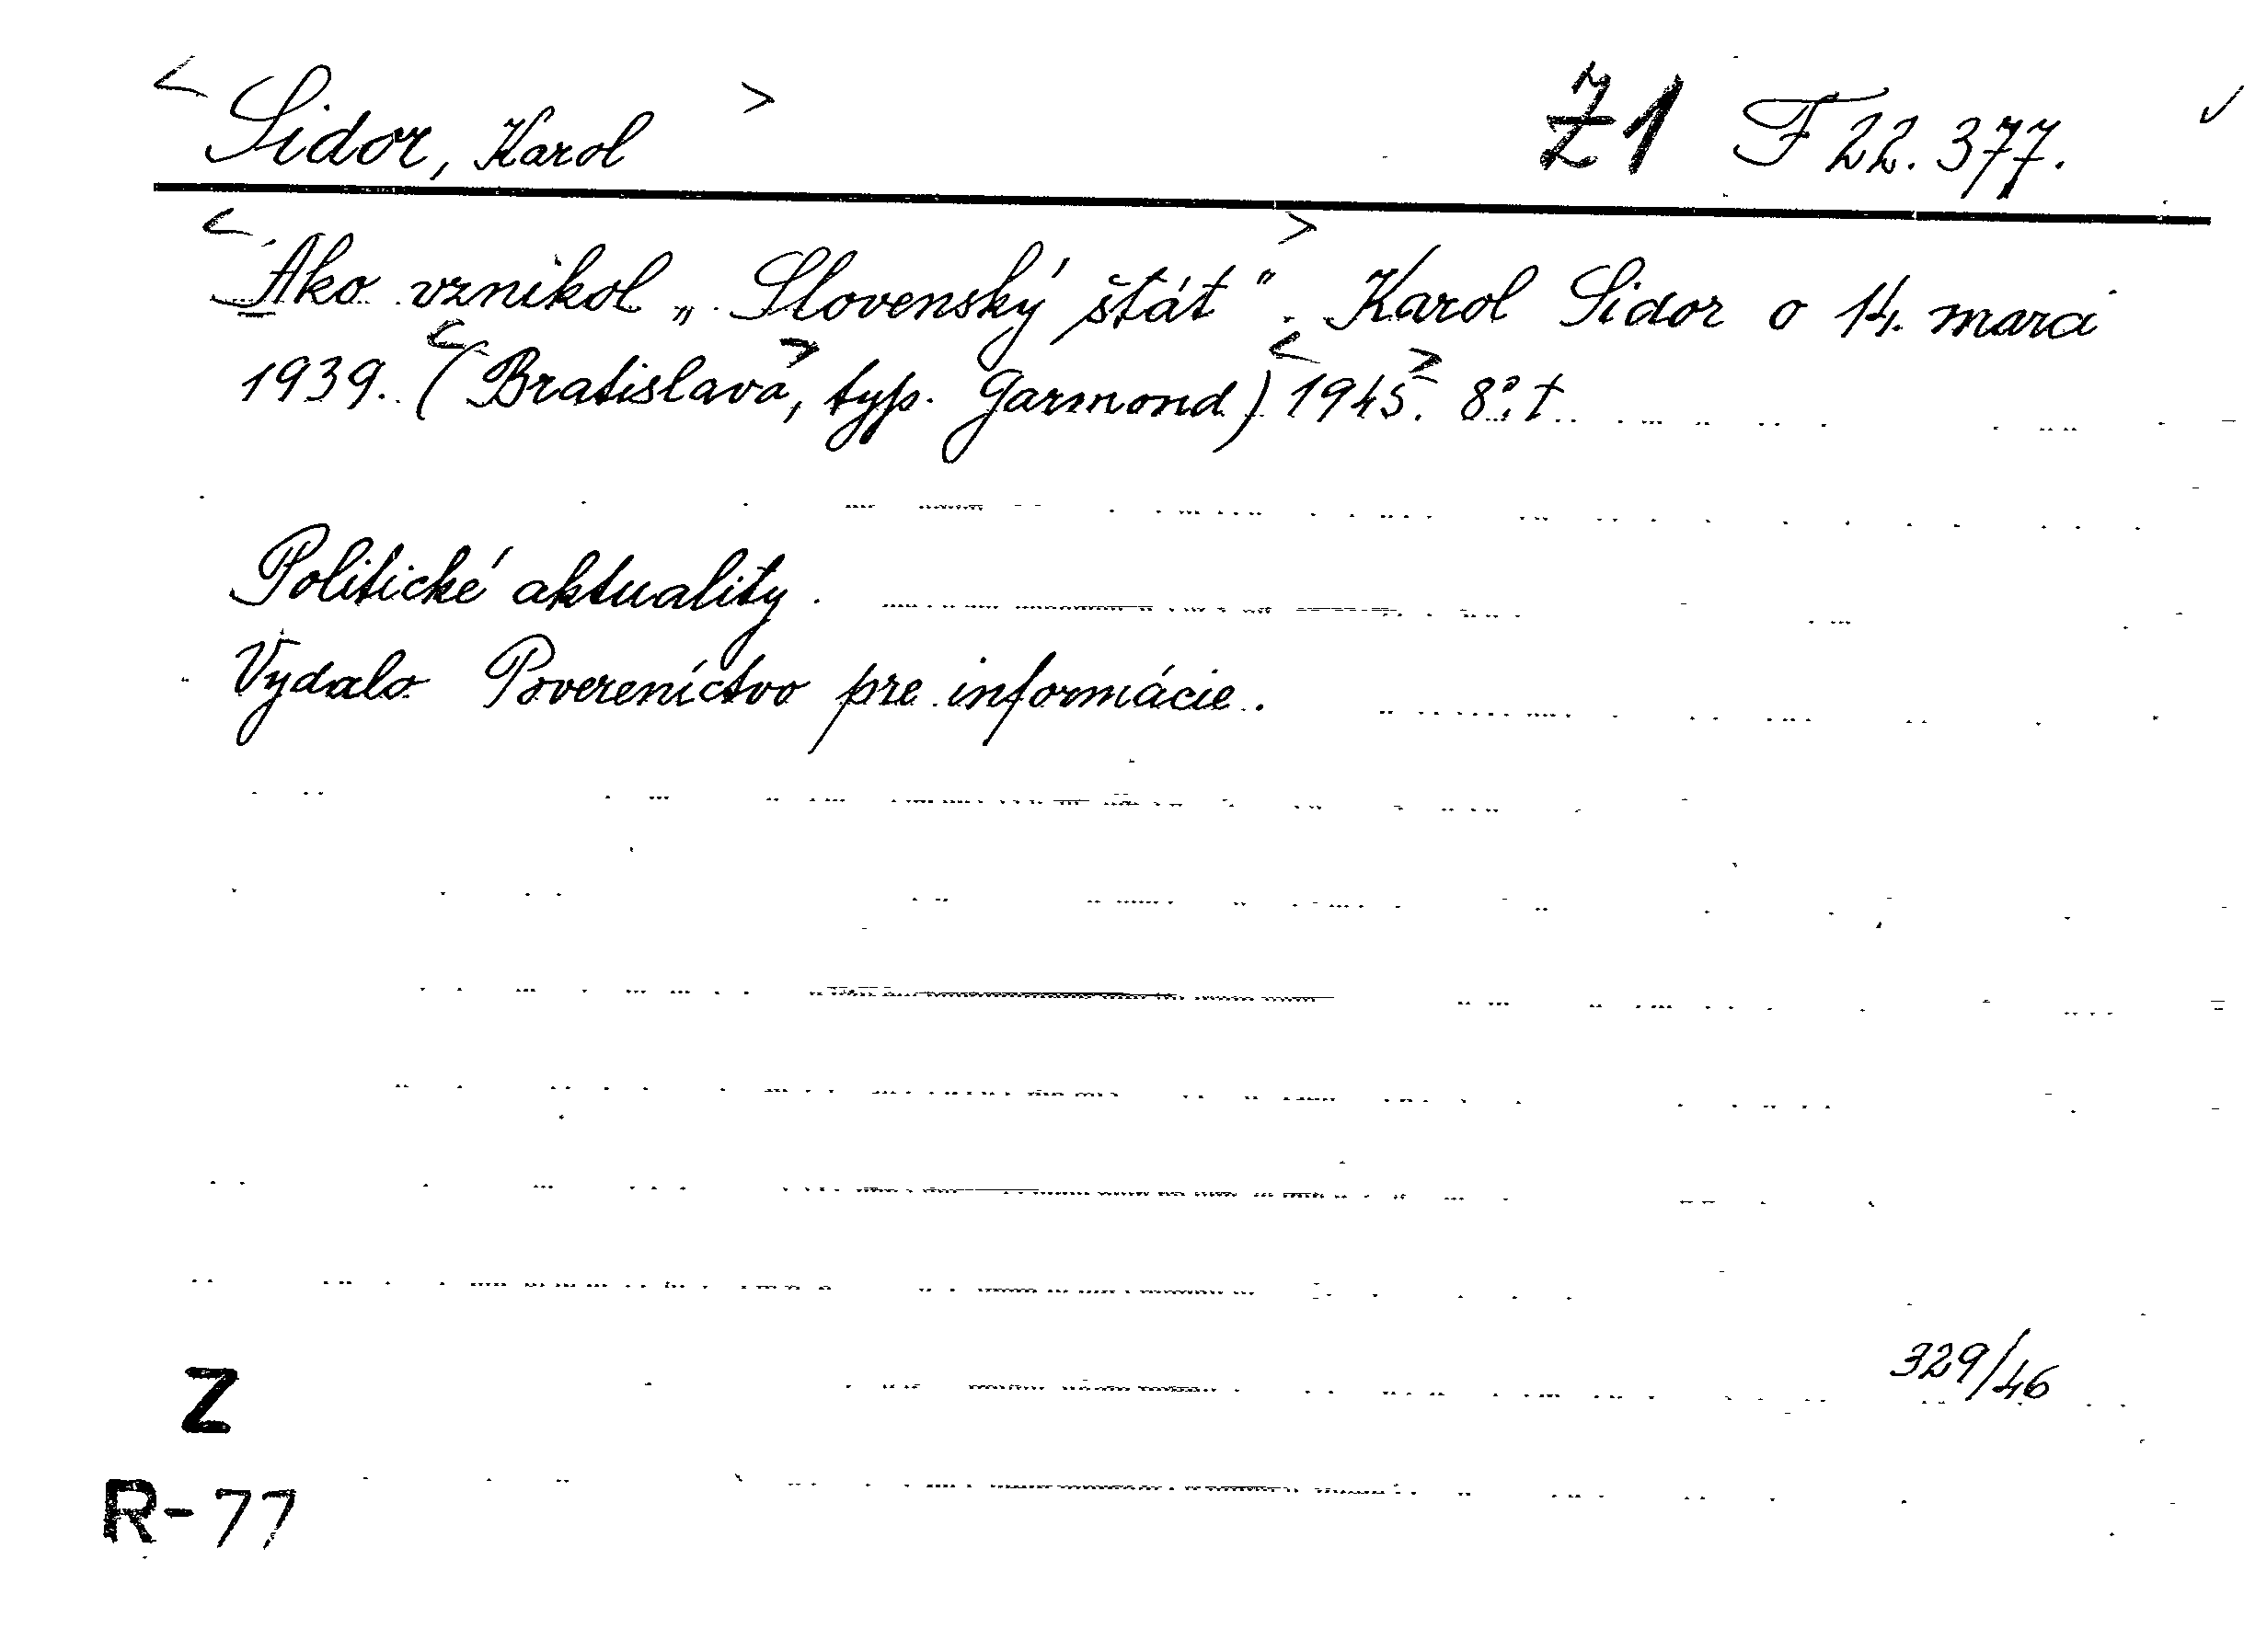 < Sidor, Karol > Z1 F 22.377. ✓
< Ako vznikol „Slovenský štát“ >. Karol Sidor o 14. marci
1939. (<Bratislava>, typ. Garmond) <1945>. 8° .
Politické aktuality.
Vydalo Povereníctvo pre informácie.
329/46
Z
R-77